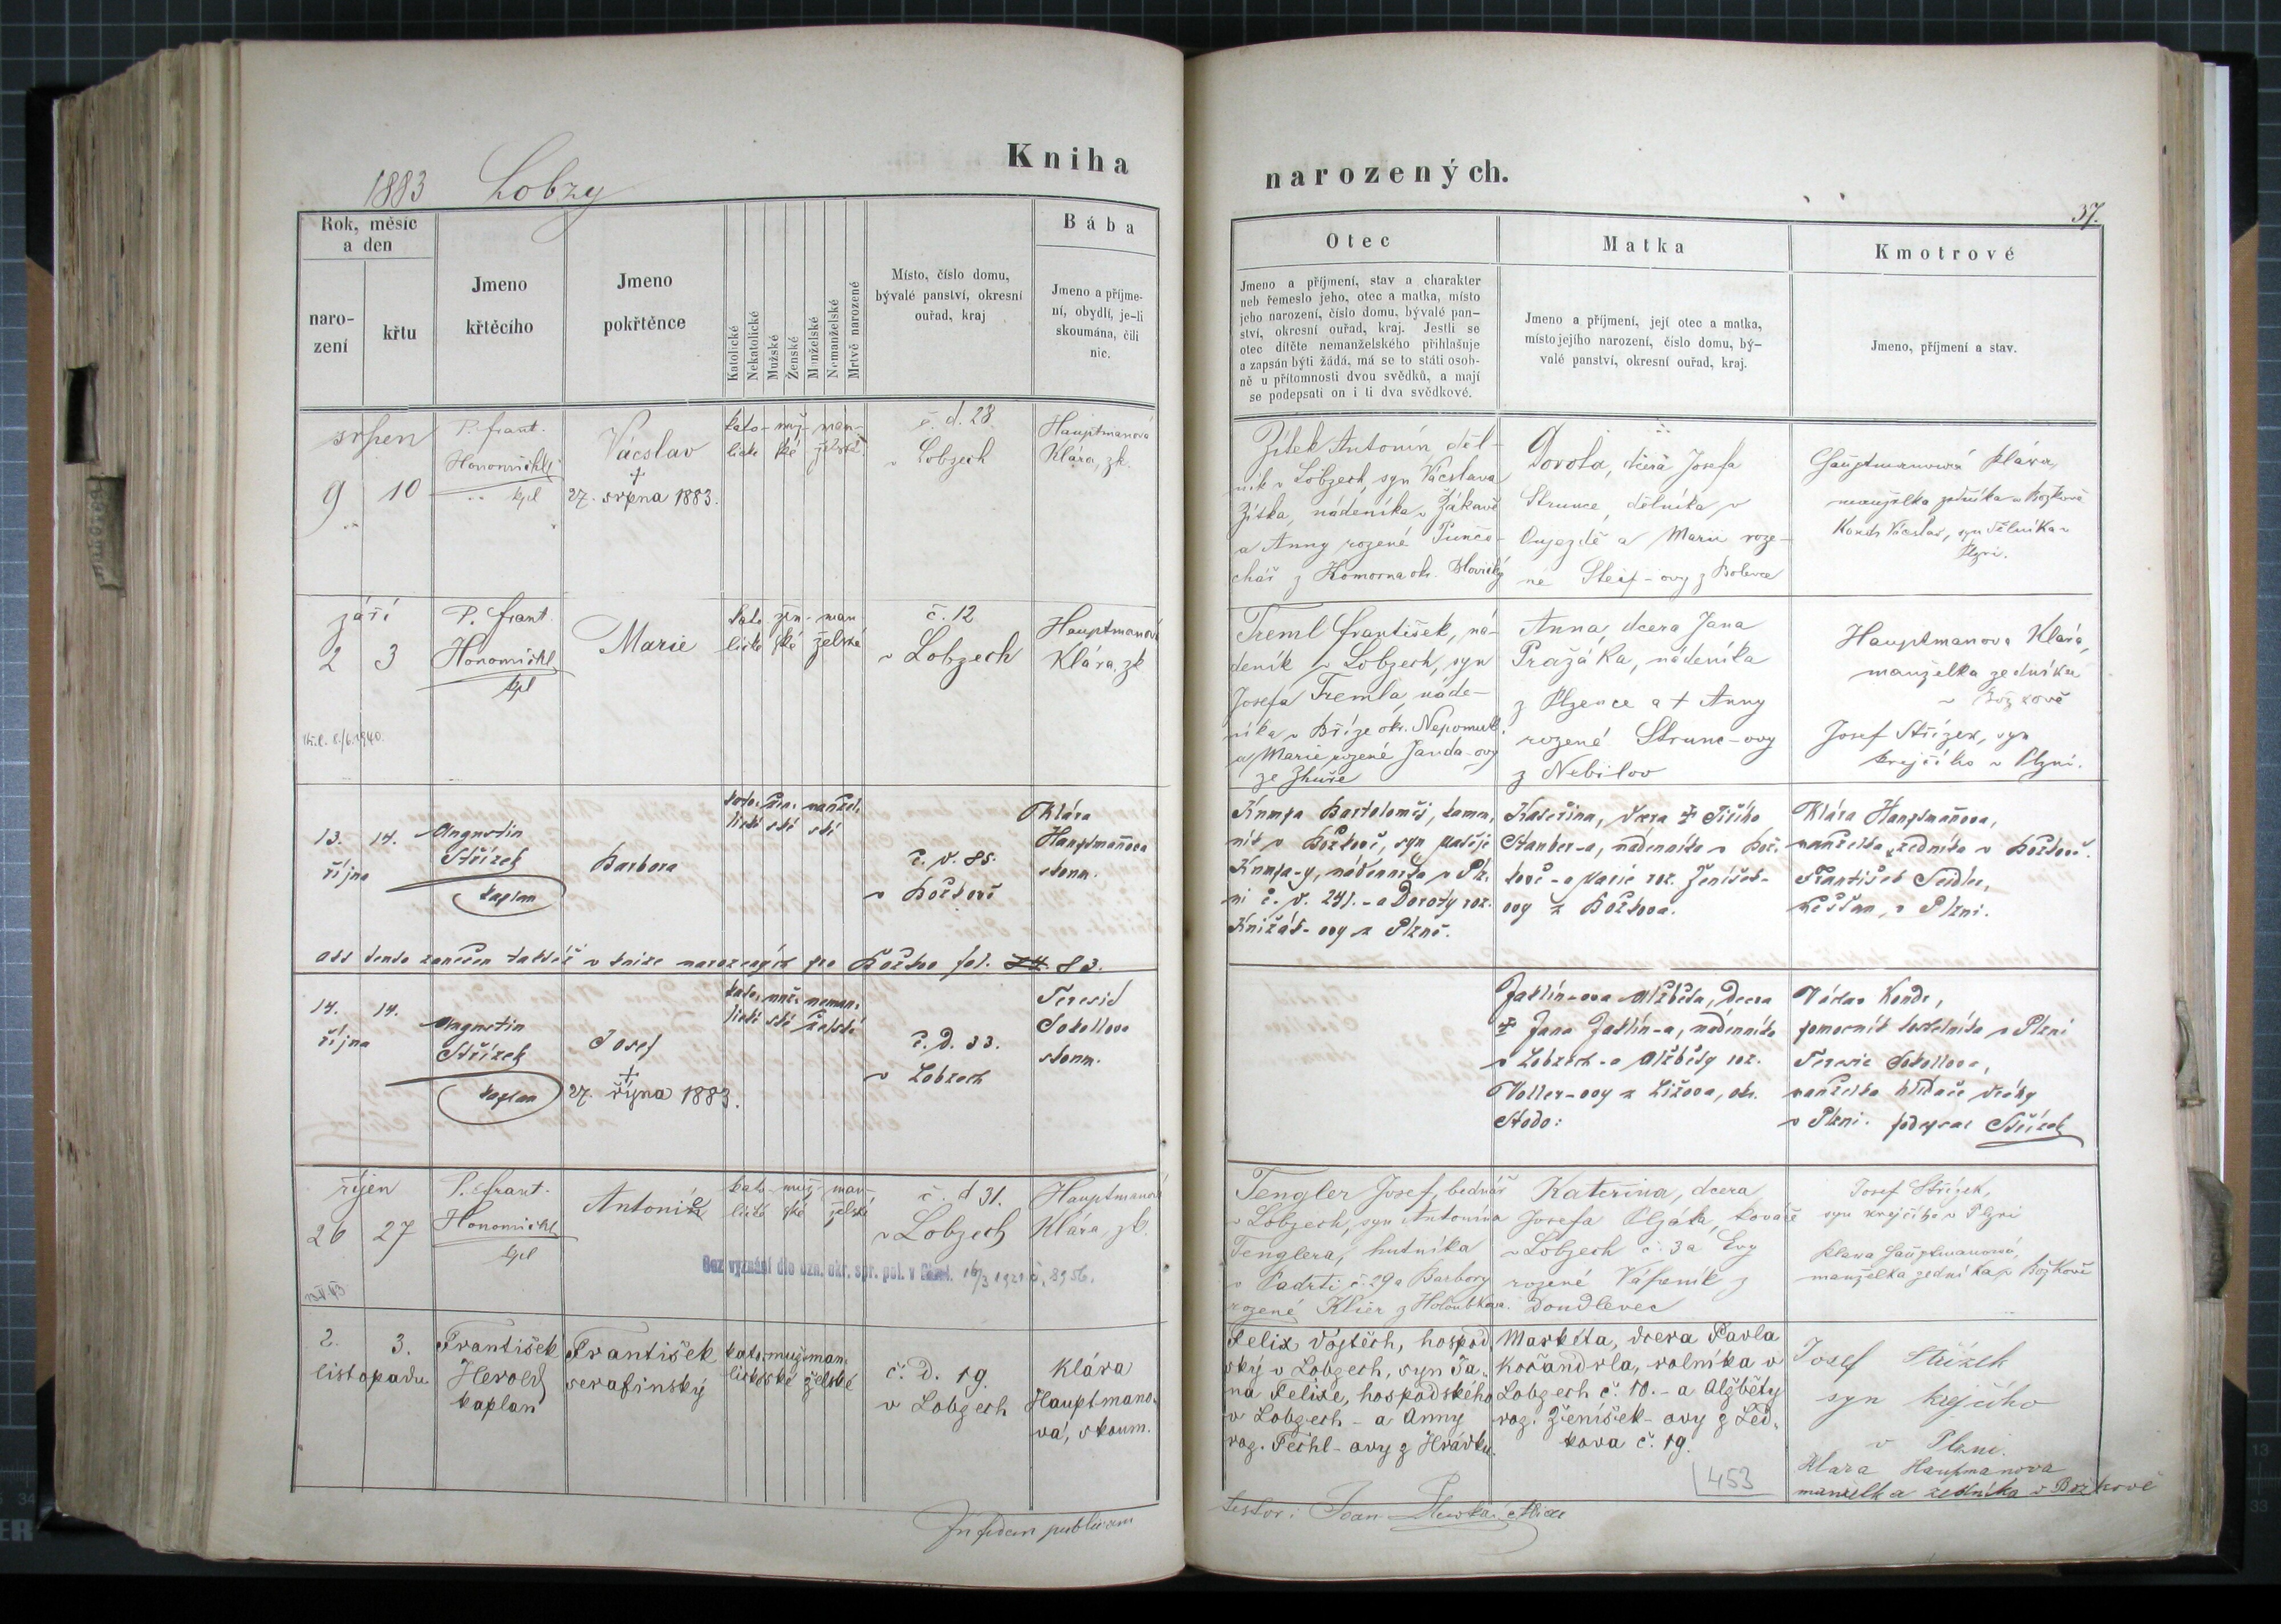 1883 Lobzy
Kniha
narozených.
37.
Rok, měsíc
a den
naro-
zení
křtu
Jmeno
křtěcího
Jmeno
pokřtěnce
Katolické
Nekatolické
Mužské
Ženské
Manželské
Nemanželské
Mrtvě narozené
Místo, číslo domu,
bývalé panství, okresní
ouřad, kraj
Bába
Jmeno a příjme-
ní, obydlí, je-li
skoumána, čili
nic.
Otec
Jmeno a příjmení, stav a charakter
neb řemeslo jeho, otec a matka, místo
jeho narození, číslo domu, bývalé pan-
ství, okresní ouřad, kraj. Jestli se
otec dítěte nemanželského přihlašuje
a zapsán býti žádá, má se to státi osob-
ně u přítomnosti dvou svědků, a mají
se podepsati on i ti dva svědkové.
Matka
Jmeno a příjmení, její otec a matka,
místo jejího narození, číslo domu, bý-
valé panství, okresní ouřad, kraj.
Kmotrové
Jmeno, příjmení a stav.
srpen
9 10
P. Frant.
Honomichl
kpl
Vácslav
+
27. srpna 1883.
kato- muž- man-
lické ské želské
č. d. 28
v Lobzech
Hauptmanová
Klára, zk.
Zítek Antonín, děl-
ník v Lobzech, syn Vácslava
Zítka, nádeníka v Žákavě
a Anny rozené Punčo-
chář z Komorna okr. Blovický
Dorota, dcera Josefa
Strunce, dělníka v
Oujezdě a Marie roze-
né Steif-ovy z Bolevce
Hauptmanová Klára,
manželka zedníka v Božkově
Vácslav, syn dělníka v
Plzni.
září
2 3
P. Frant.
Honomichl
kpl
Marie
kato- žen- man
lické ské želské
č. 12
v Lobzech
Hauptmanová
Klára, zk
Treml František, ná-
deník v Lobzech, syn
Josefa Tremla, náde-
níka v Bříze okr. Nepomuk
a Marie rozené Janda-ovy
ze Zhuře
Anna, dcera Jana
Pražáka, nádeníka
z Plzence a + Anny
rozené Strunc-ovy
z Nebílov
Hauptmanova Klára,
manželka zedníka
v Božkově
Josef Střízek, syn
krejčího v Plzni.
13. 14.
října
Augustin
Střízek
kaplan
Barbora
kato- žen. manžel.
lické ské ské
č. d. 85.
v Božkově
Klára
Hauptmanova
skoum.
Bartoloměj, kamen.
ník v Božkově, syn Matěje
nádenníka v Plz.
ni č. d. 241. - a Doroty roz.
Knižák-ovy z Plzně.
Kateřina, dcera + Jiřího
Stauber-a, nádenníka v Bož.
kově - a Marie roz. Ženíšek-
ovy z Božkova.
Klára Hauptmanova,
manželka zedníka v Božkově.
František Seidler,
v Plzni.
Akt tento zanešen taktéž v knize narozených pro Božkov fol. 83.
14. 14.
října
Augustin
Střízek
kaplan
Josef
+
27. října 1883.
kato. muž. neman.
lické ské želské
č. d. 33.
v Lobzech
Terezie
Sokollova
skoum.
Jaklín-ova Alžběta, dcera
+ Jana Jaklín-a, nádenníka
v Lobzech - a Alžběty roz.
Voller-ovy z Ližova, okr.
Stodo:
Václav
pomocník kostelníka v Plzni
Terezie Sokollova,
manželka hlídače dráhy
v Plzni. podepsal Střízek
říjen
26 27
P. Frant.
Honomichl
kpl
Antonín
kato- muž- man-
lické ské želské
č. d 31.
v Lobzech
Hauptmanová
Klára, zk.
Bez vyznání dle ozn. okr. spr. pol. v Plzni. 16/3 1921 č. 8956.
Tengler Josef, bednář
v Lobzech, syn Antonína
Tenglera, hutníka
v Padrti č. 29 a Barbory
rozené Klier z Holoubkova.
Kateřina, dcera
Josefa Olzák, kováře
v Lobzech č. 3 a Evy
rozené Vápeník z
Doudlevec
Josef Střízek,
syn krejčího v Plzni
Klara Hauptmanová,
manželka zedníka v Božkově
2. 3.
listopadu
František
Herold
kaplan
František
serafinský
kato. muž. man.
lické ské želské
č. D. 19.
v Lobzech
Klára
Hauptmano-
vá, skoum.
Felix Vojtěch, hospod.
ský v Lobzech, syn Ja.
na Felixe, hospodského
v Lobzech - a Anny
roz. Fechl-ovy z Hrádku.
Markéta, dcera Pavla
Kořandrla, rolníka v
Lobzech č. 10. - a Alžběty
roz. Ženíšek-ovy z Led.
kova č. 19.
453
Josef Střízek
syn krejčího
v Plzni.
Klara Haupmanova
manželka zedníka v Božkově
In fidem publicam
testor: Joan